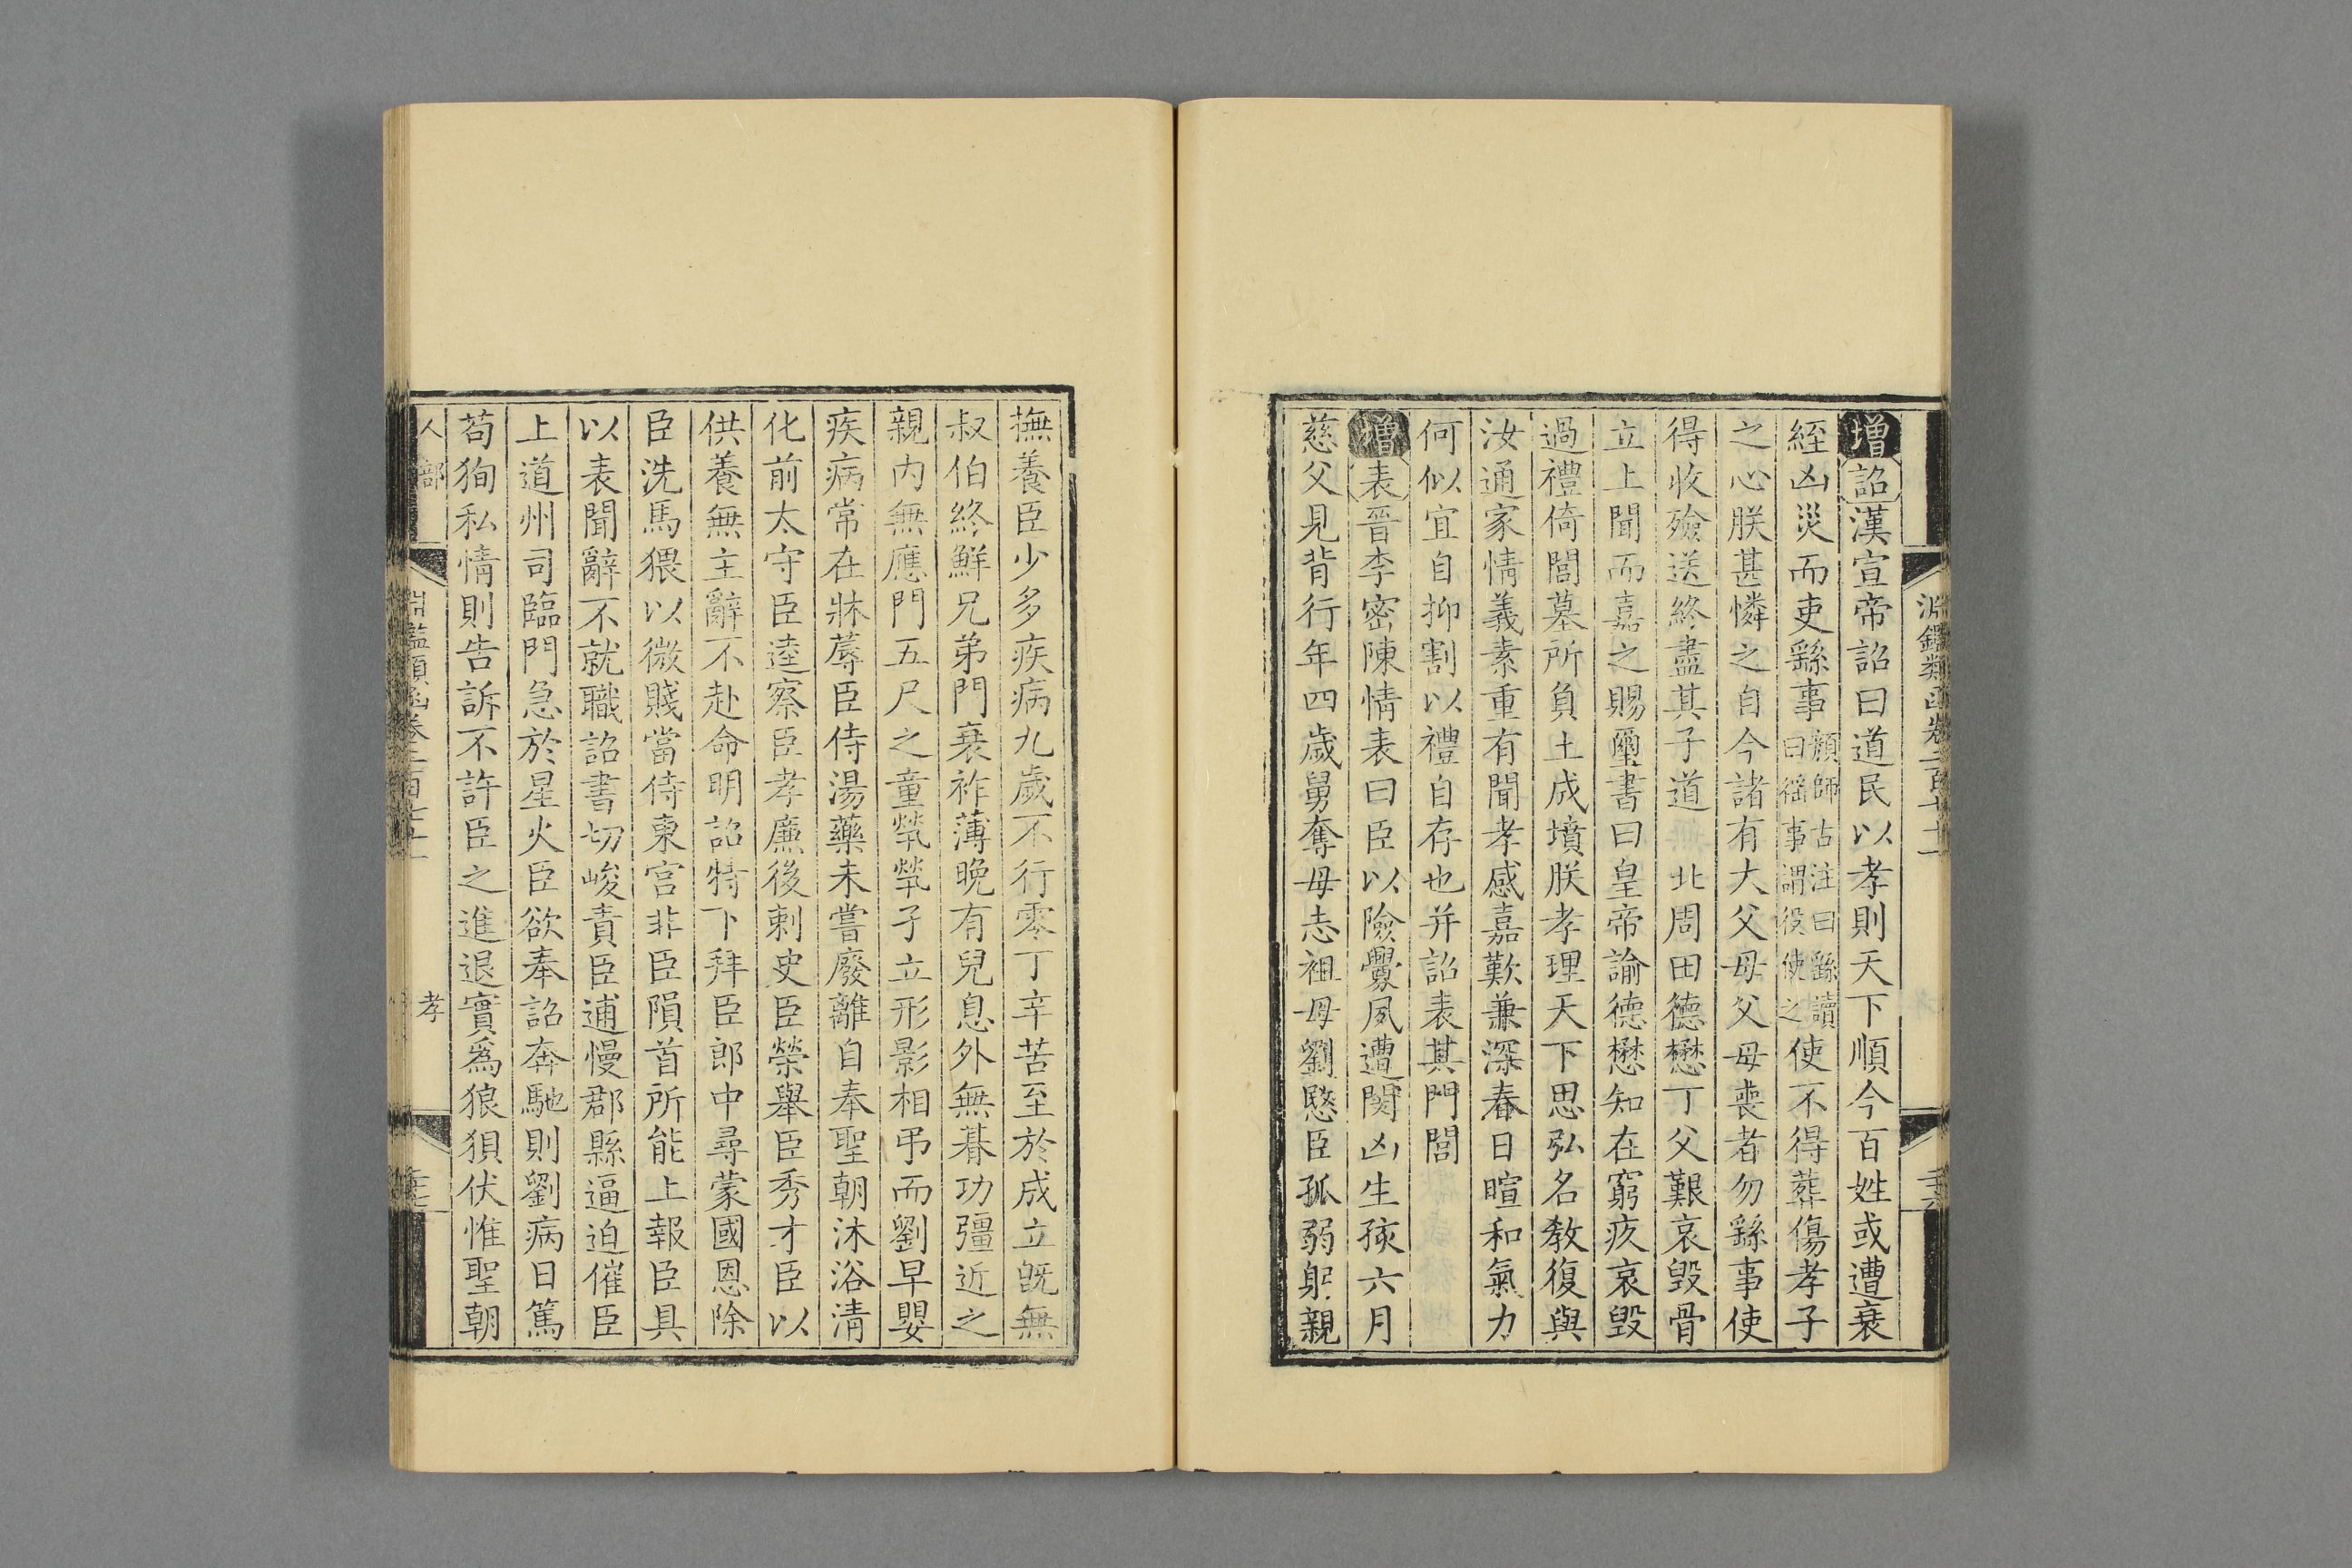 增詔漢宣帝詔曰道民以孝則天下順今百姓或遭衰
絰凶災而吏繇事顏師古注曰繇讀曰徭事謂役使之使不得葬傷孝子
之心朕甚憐之自今諸有大父母父母喪者勿繇事使
得收殮送終盡其子道 北周田德懋丁父艱哀毀骨
立上聞而嘉之賜璽書曰皇帝諭德懋知在窮疚哀毀
過禮倚閭墓所負土成墳朕孝理天下思弘名教復與
汝通家情義素重有聞孝感嘉歎兼深春日暄和氣力
何似宜自抑割以禮自存也并詔表其門閭
增表晉李密陳情表曰臣以險釁夙遭閔凶生孩六月
慈父見背行年四歲舅奪母志祖母劉愍臣孤弱躬親
撫養臣少多疾病九歲不行零丁辛苦至於成立旣無
叔伯終鮮兄弟門衰祚薄晚有兒息外無朞功彊近之
親內無應門五尺之童煢煢孑立形影相弔而劉早嬰
疾病常在牀蓐臣侍湯藥未嘗廢離自奉聖朝沐浴清
化前太守臣逵察臣孝廉後刺史臣榮舉臣秀才臣以
供養無主辭不赴命明詔特下拜臣郎中尋蒙國恩除
臣洗馬猥以微賤當侍東宮非臣隕首所能上報臣具
以表聞辭不就職詔書切峻責臣逋慢郡縣逼迫催臣
上道州司臨門急於星火臣欲奉詔奔馳則劉病日篤
苟狥私情則告訴不許臣之進退實爲狼狽伏惟聖朝
淵鑑類函卷二百七十一
人部
孝